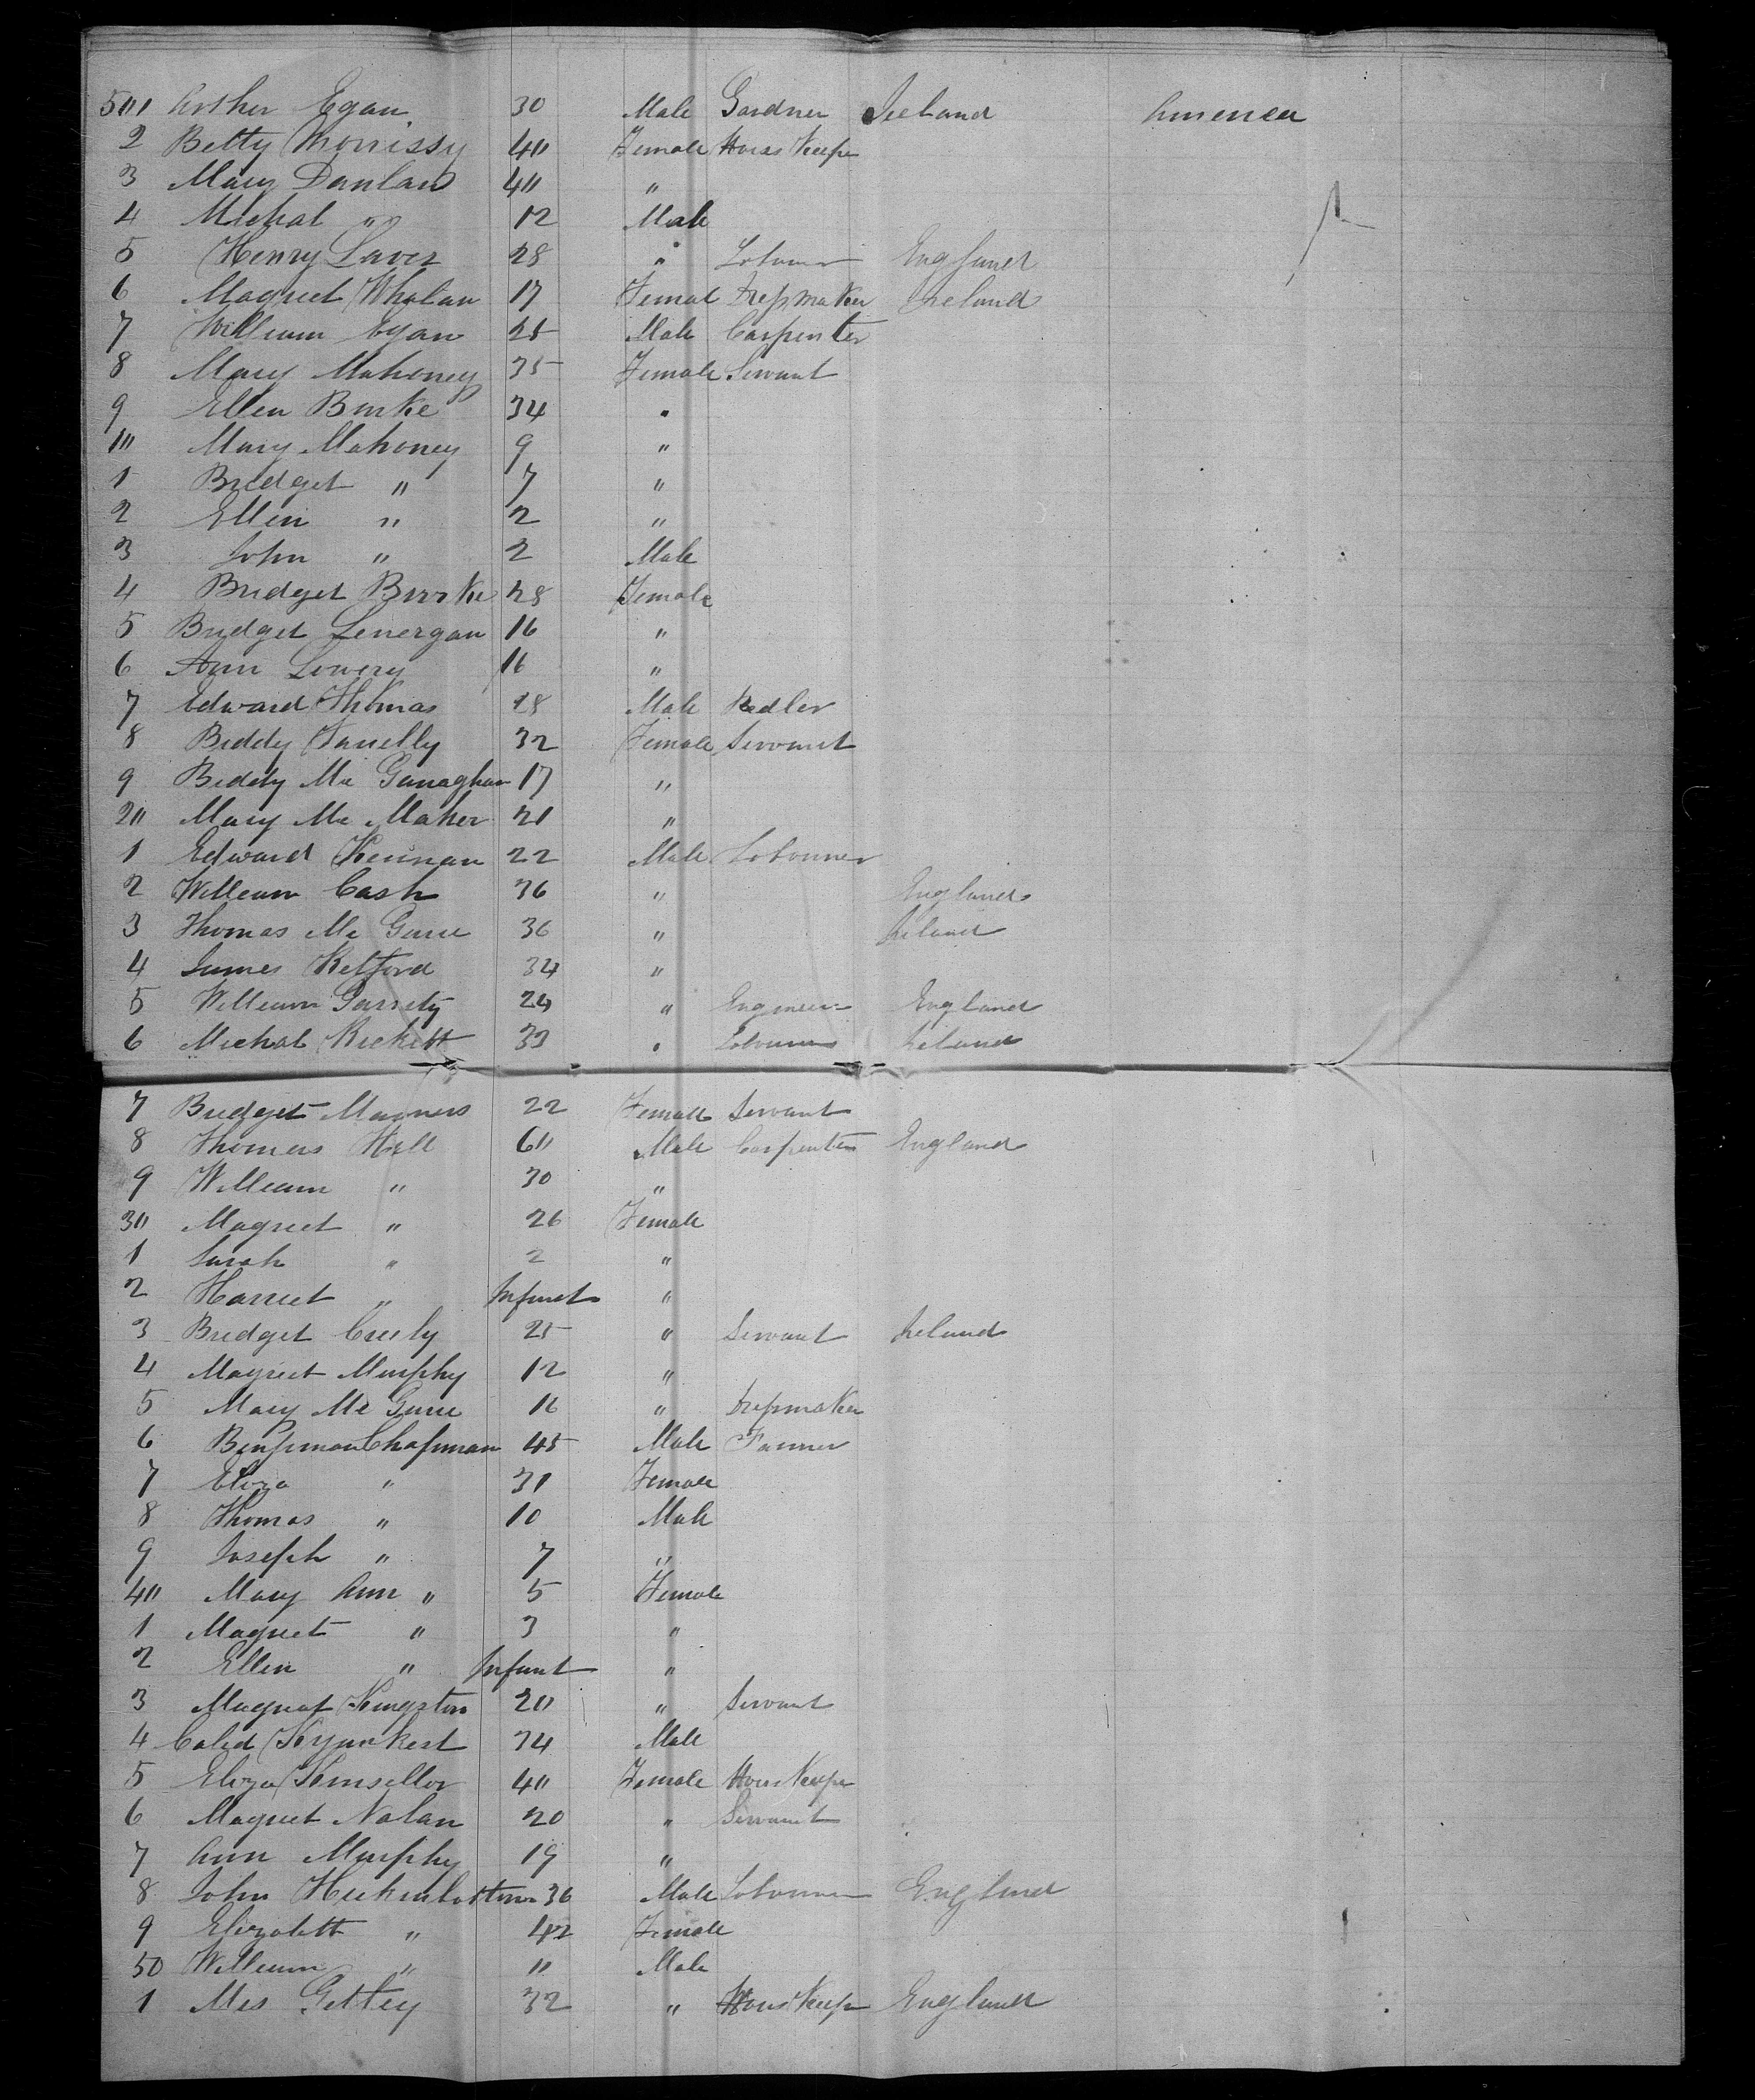 501 Arther Egan 30 Male Gardner Ireland America
2 Betty Morrissy 40 Female Hous Keeper
3 Mary Danlan 40 "
4 Michal " 12 Male
5 Henry Laver 28 " Labourer England
6 Magreet Whalan 17 Femal Dressmaker Ireland
7 William Egan 25 Male Carpenter
8 Mary Mahoney 35 Female Servant
9 Ellen Burke 34 "
10 Mary Mahoney 9 "
1 Bridget " 7 "
2 Ellen " 2 "
3 John " 2 Male
4 Bridget Burke 28 Female
5 Bridget Lenergan 16 "
6 Ann Lowery 16 "
7 Edward Thomas 28 Male Pedler
8 Biddy 32 Female Servant
9 Biddy Mc Ganaghan 17 "
20 Mary Mc Maher 21 "
1 Edward Keenan 22 Male Labourer
2 William Cash 36 " England
3 Thomas Mc Guire 36 " Ireland
4 James Ketford 34 "
5 William Garrety 24 " Engineer England
6 Michal Rickett 33 " Labourer Ireland
7 Bridget Magners 22 Female Servant
8 Thomas Hall 60 Male Carpenter England
9 William " 30 "
30 Magreet " 26 Female
1 Sarah " 2 "
2 Harriet " Infant "
3 Bridget 25 " Servant Ireland
4 Magreet Murphy 12 "
5 Mary Mc Guire 16 " Dressmaker
6 Benjiman Chapman 45 Male Farmer
7 Eliza " 31 Female
8 Thomas " 10 Male
9 Joseph " 7 "
40 Mary Ann " 5 Female
1 Magreet " 3 "
2 Ellen " Infant "
3 Magreat Kingston 20 " Servant
4 34 Male
5 Eliza Kinsellor 40 Female Hous Keeper
6 Magreet Nolan 20 " Servant
7 Ann Murphy 19 "
8 John 36 Male Labourer England
9 Elizabeth " 42 Female
50 William " 11 Male
1 Mrs Gettey 32 " Hous Keeper England